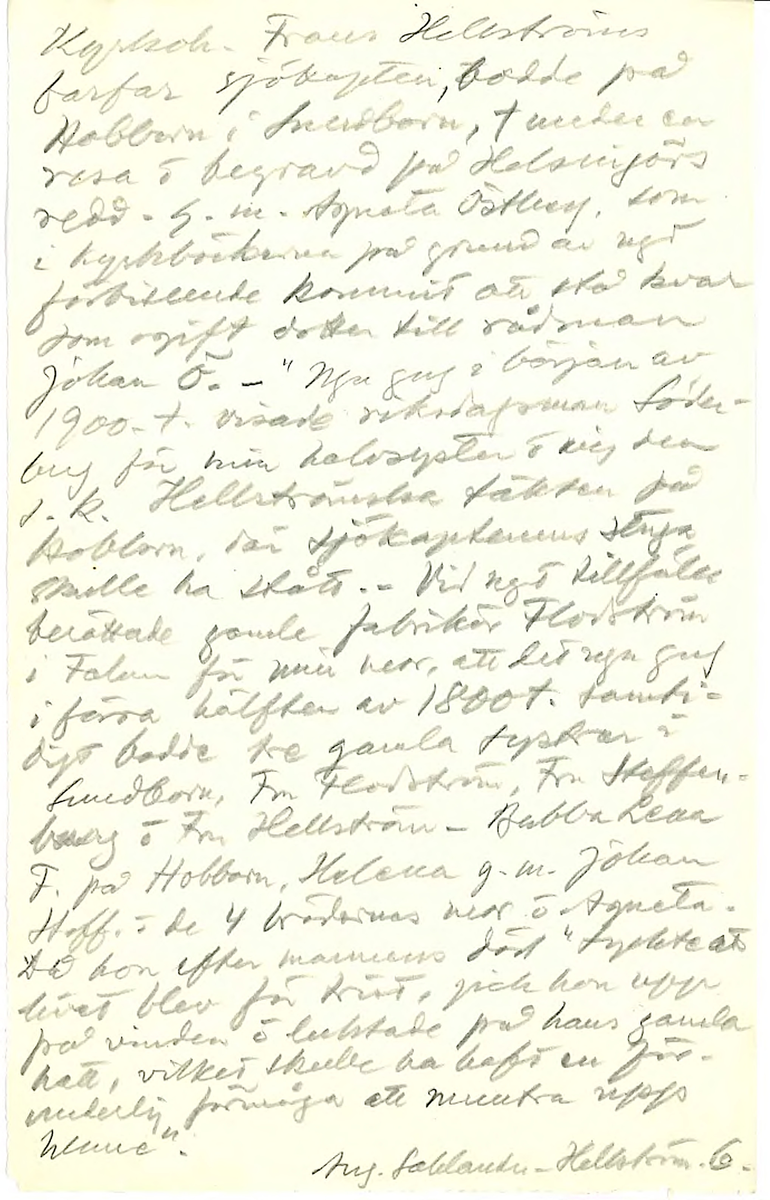 Kyrksch. Frans Hellströms
farfar sjökapten, bodde på
Hobborn i Sundborn, † under en
resa o begravd på Helsingörs
redd. G. m. Agneta Östberg, som
i kyrkböckerna på grund av ngt
förbiseende kommit att stå kvar
som ogift dotter till rådman
Johan Ö. – "Ngn gng i början av
1900-t. visade riksdagsman Söder-
berg för min halvsyster o mig den
s. k. Hellströmska täkten på
Hobborn, där sjökaptenens stuga
skulle ha stått. – Vid ngt tillfälle
berättade gamle fabrikör Flodström
i Falun för min mor, att det ngn gng
i förra hälften av 1800 t. samti-
digt bodde tre gamla systrar i
Sundborn, Fru Flodström, Fru Steffen-
burg o Fru Hellström – Bubba Lena
F. på Hobborn, Helena g. m. Johan
Steff. o de 4 brödernas mor o Agneta.
Då hon efter mannens död "tyckte att
livet blev för trist, gick hon upp
på vinden o luktade på hans gamla
hatt, vilket skulle ha haft en för-
underlig förmåga att muntra upp
henne".
Aug. Sahlander-Hellström. 6.